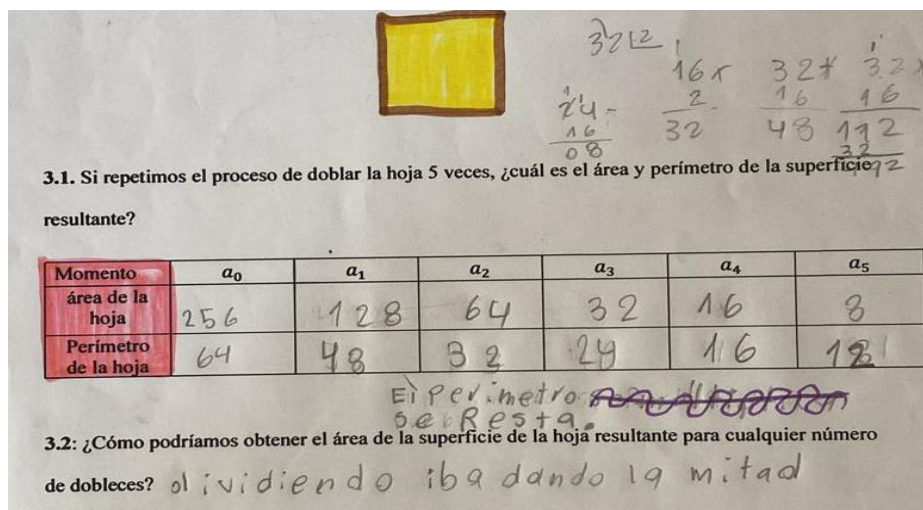 32 2
16 x 32 + 32 x
24 - 2 16 16
16 32 48 192
08 32
3.1. Si repetimos el proceso de doblar la hoja 5 veces, ¿cuál es el área y perímetro de la superficie
resultante?
Momento a₀ a₁ a₂ a₃ a₄ a₅
área de la hoja 256 128 64 32 16 8
Perímetro de la hoja 64 48 32 24 16 12
El perimetro
se Resta.
3.2: ¿Cómo podríamos obtener el área de la superficie de la hoja resultante para cualquier número
de dobleces? dividiendo iba dando la mitad